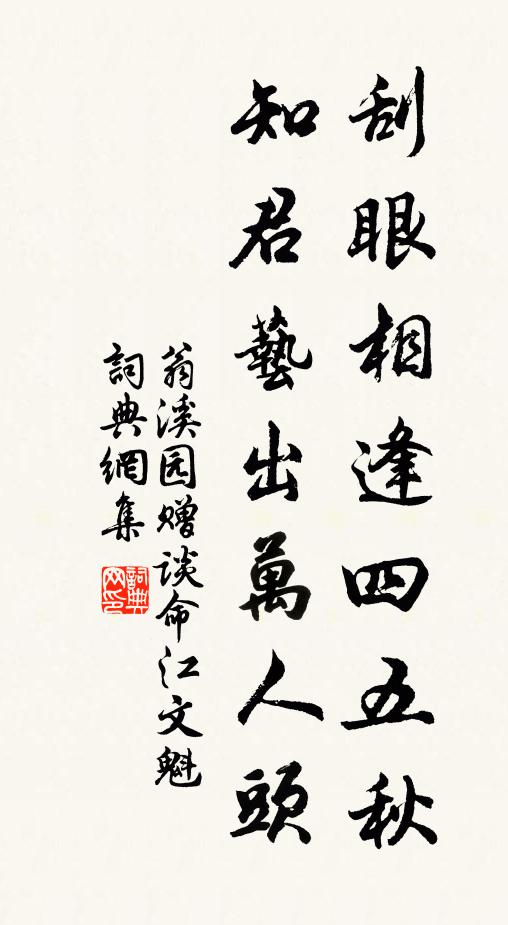 刮眼相逢四五秋
知君藝出萬人頭
翁溪园赠谈命江文魁
詞典網集
詞典网印